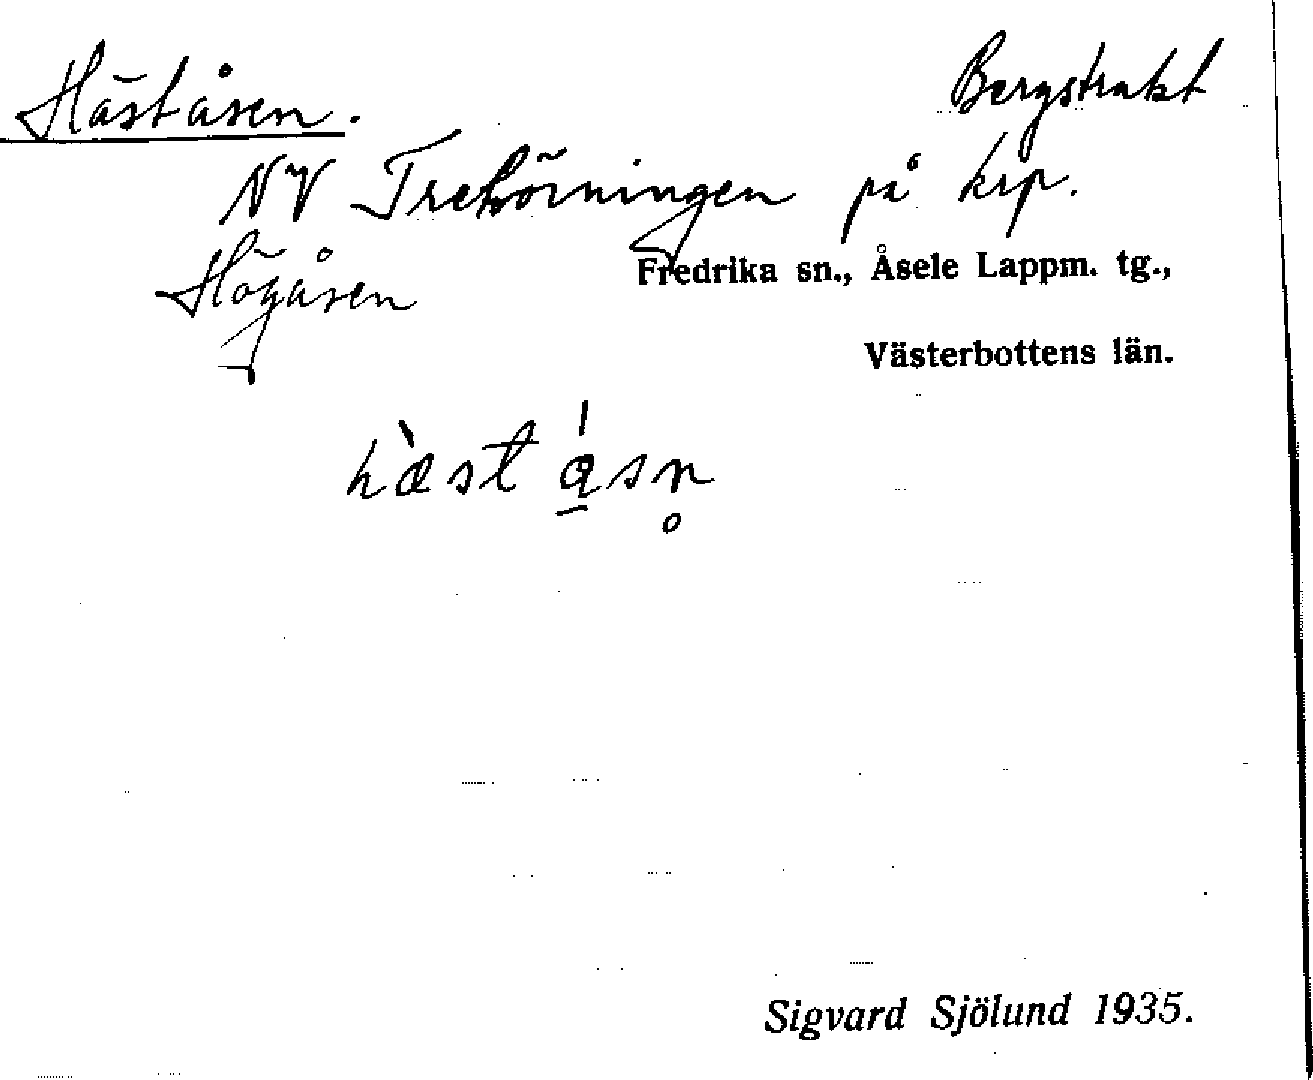 Häståsen. Bergstrakt
NV Trehörningen på krp.
Högåsen
Fredrika sn., Åsele Lappm. tg.,
Västerbottens län.
hæ̀st ásn̥
Sigvard Sjölund 1935.